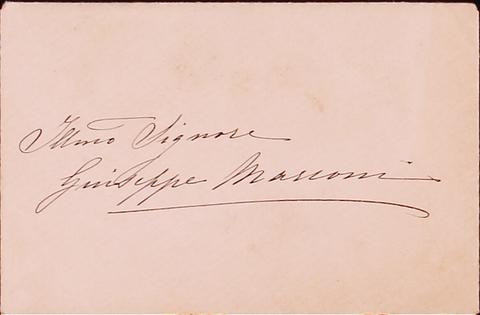 Illmo Signore
Giuseppe Marconi